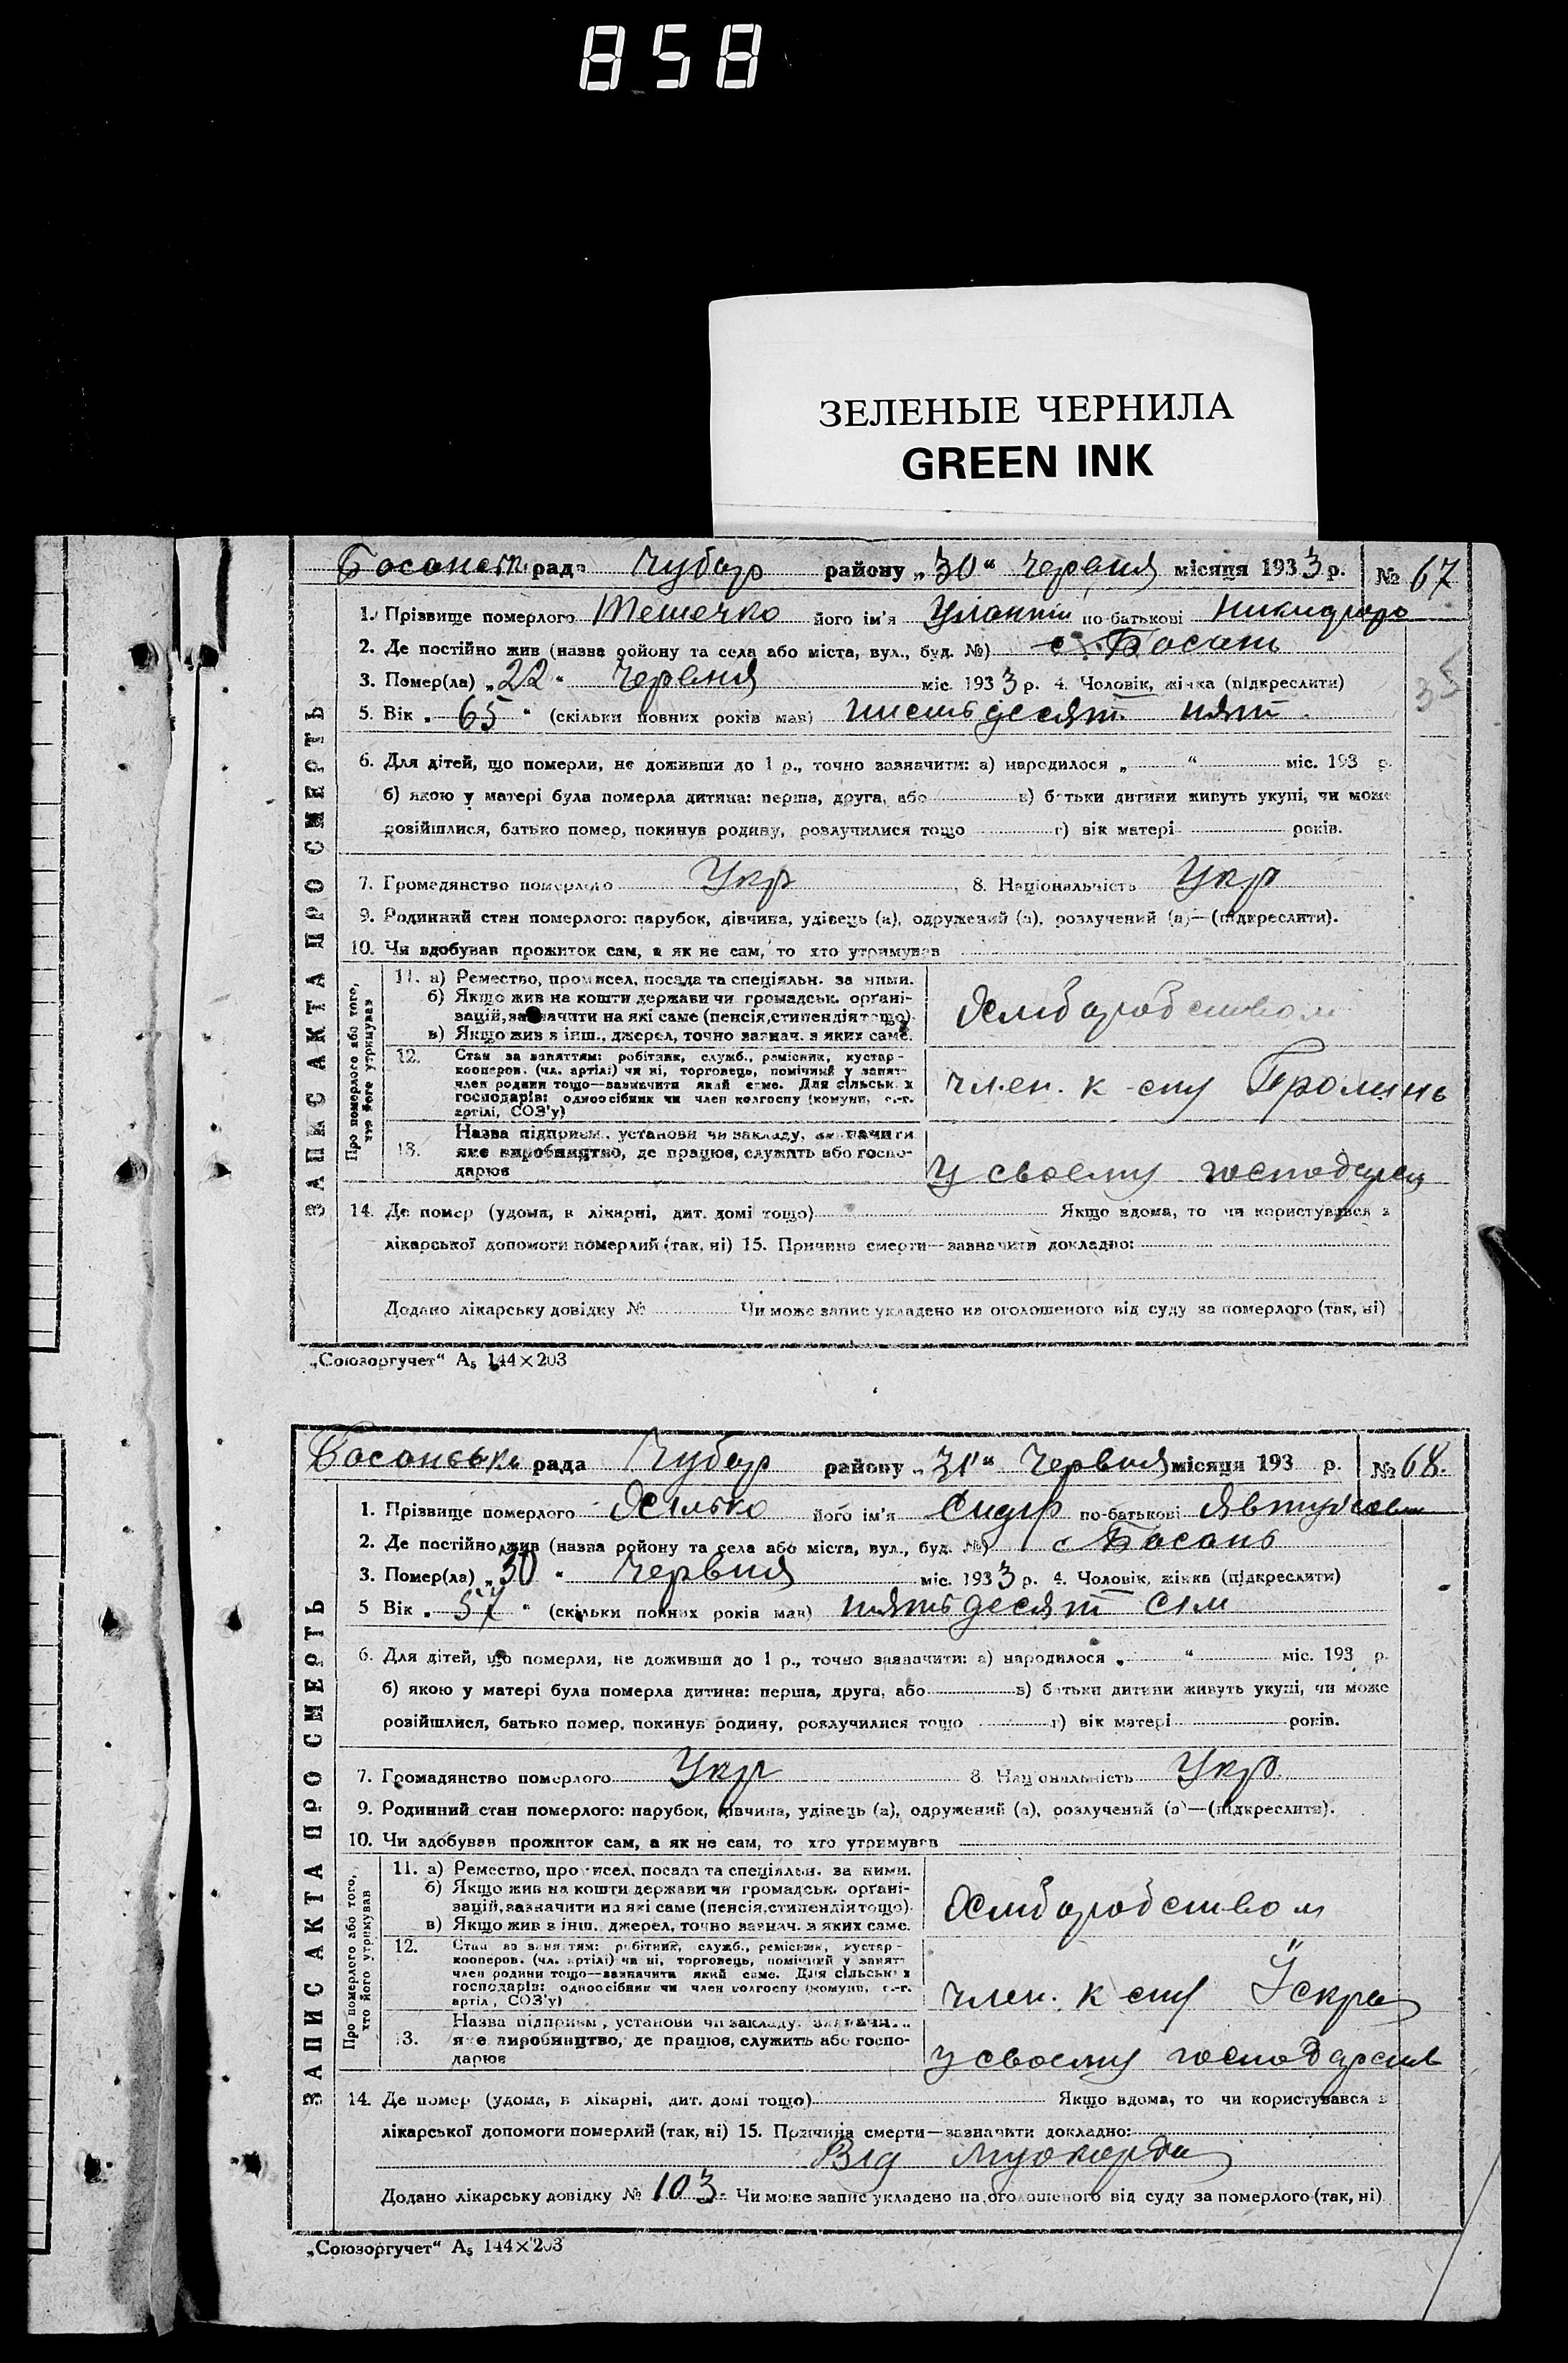 858
ЗЕЛЕНЫЕ ЧЕРНИЛА
GREEN INK
ЗАПИС АКТА ПРО СМЕРТЬ
рада Чубар району „30“ червня місяця 1933 р. № 67
1. Прізвище померлого його ім'я по-батькові
2. Де постійно жив (назва ройону та села або міста, вул., буд. №) с. Басань
3. Помер(ла) „22“ Червня міс. 1933 р. 4. Чоловік, жінка (підкреслити)
35
5. Вік „65“ (скільки повних років мав) шісьтьдесят пят
6. Для дітей, що померли, не доживши до 1 р., точно зазначити: а) народилося „ “ міс. 193 р.
б) якою у матері була померла дитина: перша, друга, або в) батьки дитини живуть укупі, чи може
розійшлися, батько помер, покинув родину, розлучилися тощо г) вік матері років.
7. Громадянство померлого Укр 8. Національність Укр
9. Родинний стан померлого: парубок, дівчина, удівець (а), одружений (а), розлучений (а)—(підкреслити).
10. Чи здобував прожиток сам, а як не сам, то хто утримував
Про померлого або того, хто його утримував
11. а) Ремество, промисел, посада та спеціяльн. за ними.
б) Якщо жив на кошти держави чи громадськ. орґані-
зацій, зазначити на які саме (пенсія, стипендія тощо).
в) Якщо жив з інш. джерел, точно зазнач. з яких саме.
12. Стан за заняттям: робітник, служб., ремісник, кустар-
кооперов. (чл. артілі) чи ні, торговець, помічний у занят-
член родини тощо—зазначити який саме. Для сільськ. х
господарів: одноосібник чи член колгоспу (комуни, с.-г.
артілі, СОЗ'у)
член. к спу Промінь
13. Назва підприєм., установи чи закладу, зазначити
яке виробництво, де працює, служить або госпо-
дарює
у своему
14. Де помер (удома, в лікарні, дит. домі тощо) Якщо вдома, то чи користувався з
лікарської допомоги померлий (так, ні) 15. Причина смерти—зазначити докладно:
Додано лікарську довідку № Чи може запис укладено на оголошеного від суду за померлого (так, ні)
„Союзоргучет“ А₅ 144×203
ЗАПИС АКТА ПРО СМЕРТЬ
Басанська рада Чубар району „31“ Червня місяця 193 р. № 68.
1. Прізвище померлого його ім'я Сидір по-батькові
2. Де постійно жив (назва ройону та села або міста, вул., буд. №) с Басань
3. Помер(ла) „30“ Червня міс. 1933 р. 4. Чоловік, жінка (підкреслити)
5 Вік „57“ (скільки повних років мав) пятьдесят сім
6. Для дітей, що померли, не доживши до 1 р., точно зазначити: а) народилося „ “ міс. 193 р.
б) якою у матері була померла дитина: перша, друга, або в) батьки дитини живуть укупі, чи може
розійшлися, батько помер, покинув родину, розлучилися тощо г) вік матері років.
7. Громадянство померлого Укр 8. Національність Укр
9. Родинний стан померлого: парубок, дівчина, удівець (а), одружений (а), розлучений (а)—(підкреслити).
10. Чи здобував прожиток сам, а як не сам, то хто утримував
Про померлого або того, хто його утримував
11. а) Ремество, промисел, посада та спеціяльн. за ними.
б) Якщо жив на кошти держави чи громадськ. орґані-
зацій, зазначити на які саме (пенсія, стипендія тощо).
в) Якщо жив з інш. джерел, точно зазнач. з яких саме.
12. Стан за заняттям: робітник, служб., ремісник, кустар-
кооперов. (чл. артілі) чи ні, торговець, помічний у занят-
член родини тощо—зазначити який саме. Для сільськ. х
господарів: одноосібник чи член колгоспу (комуни, с.-г.
артілі, СОЗ'у)
член. к спу Їскра
13. Назва підприєм., установи чи закладу, зазначити
яке виробництво, де працює, служить або госпо-
дарює
у своему господарстві
14. Де помер (удома, в лікарні, дит. домі тощо) Якщо вдома, то чи користувався з
лікарської допомоги померлий (так, ні) 15. Причина смерти—зазначити докладно:
Від
Додано лікарську довідку № 103. Чи може запис укладено на оголошеного від суду за померлого (так, ні)
„Союзоргучет“ А₅ 144×203